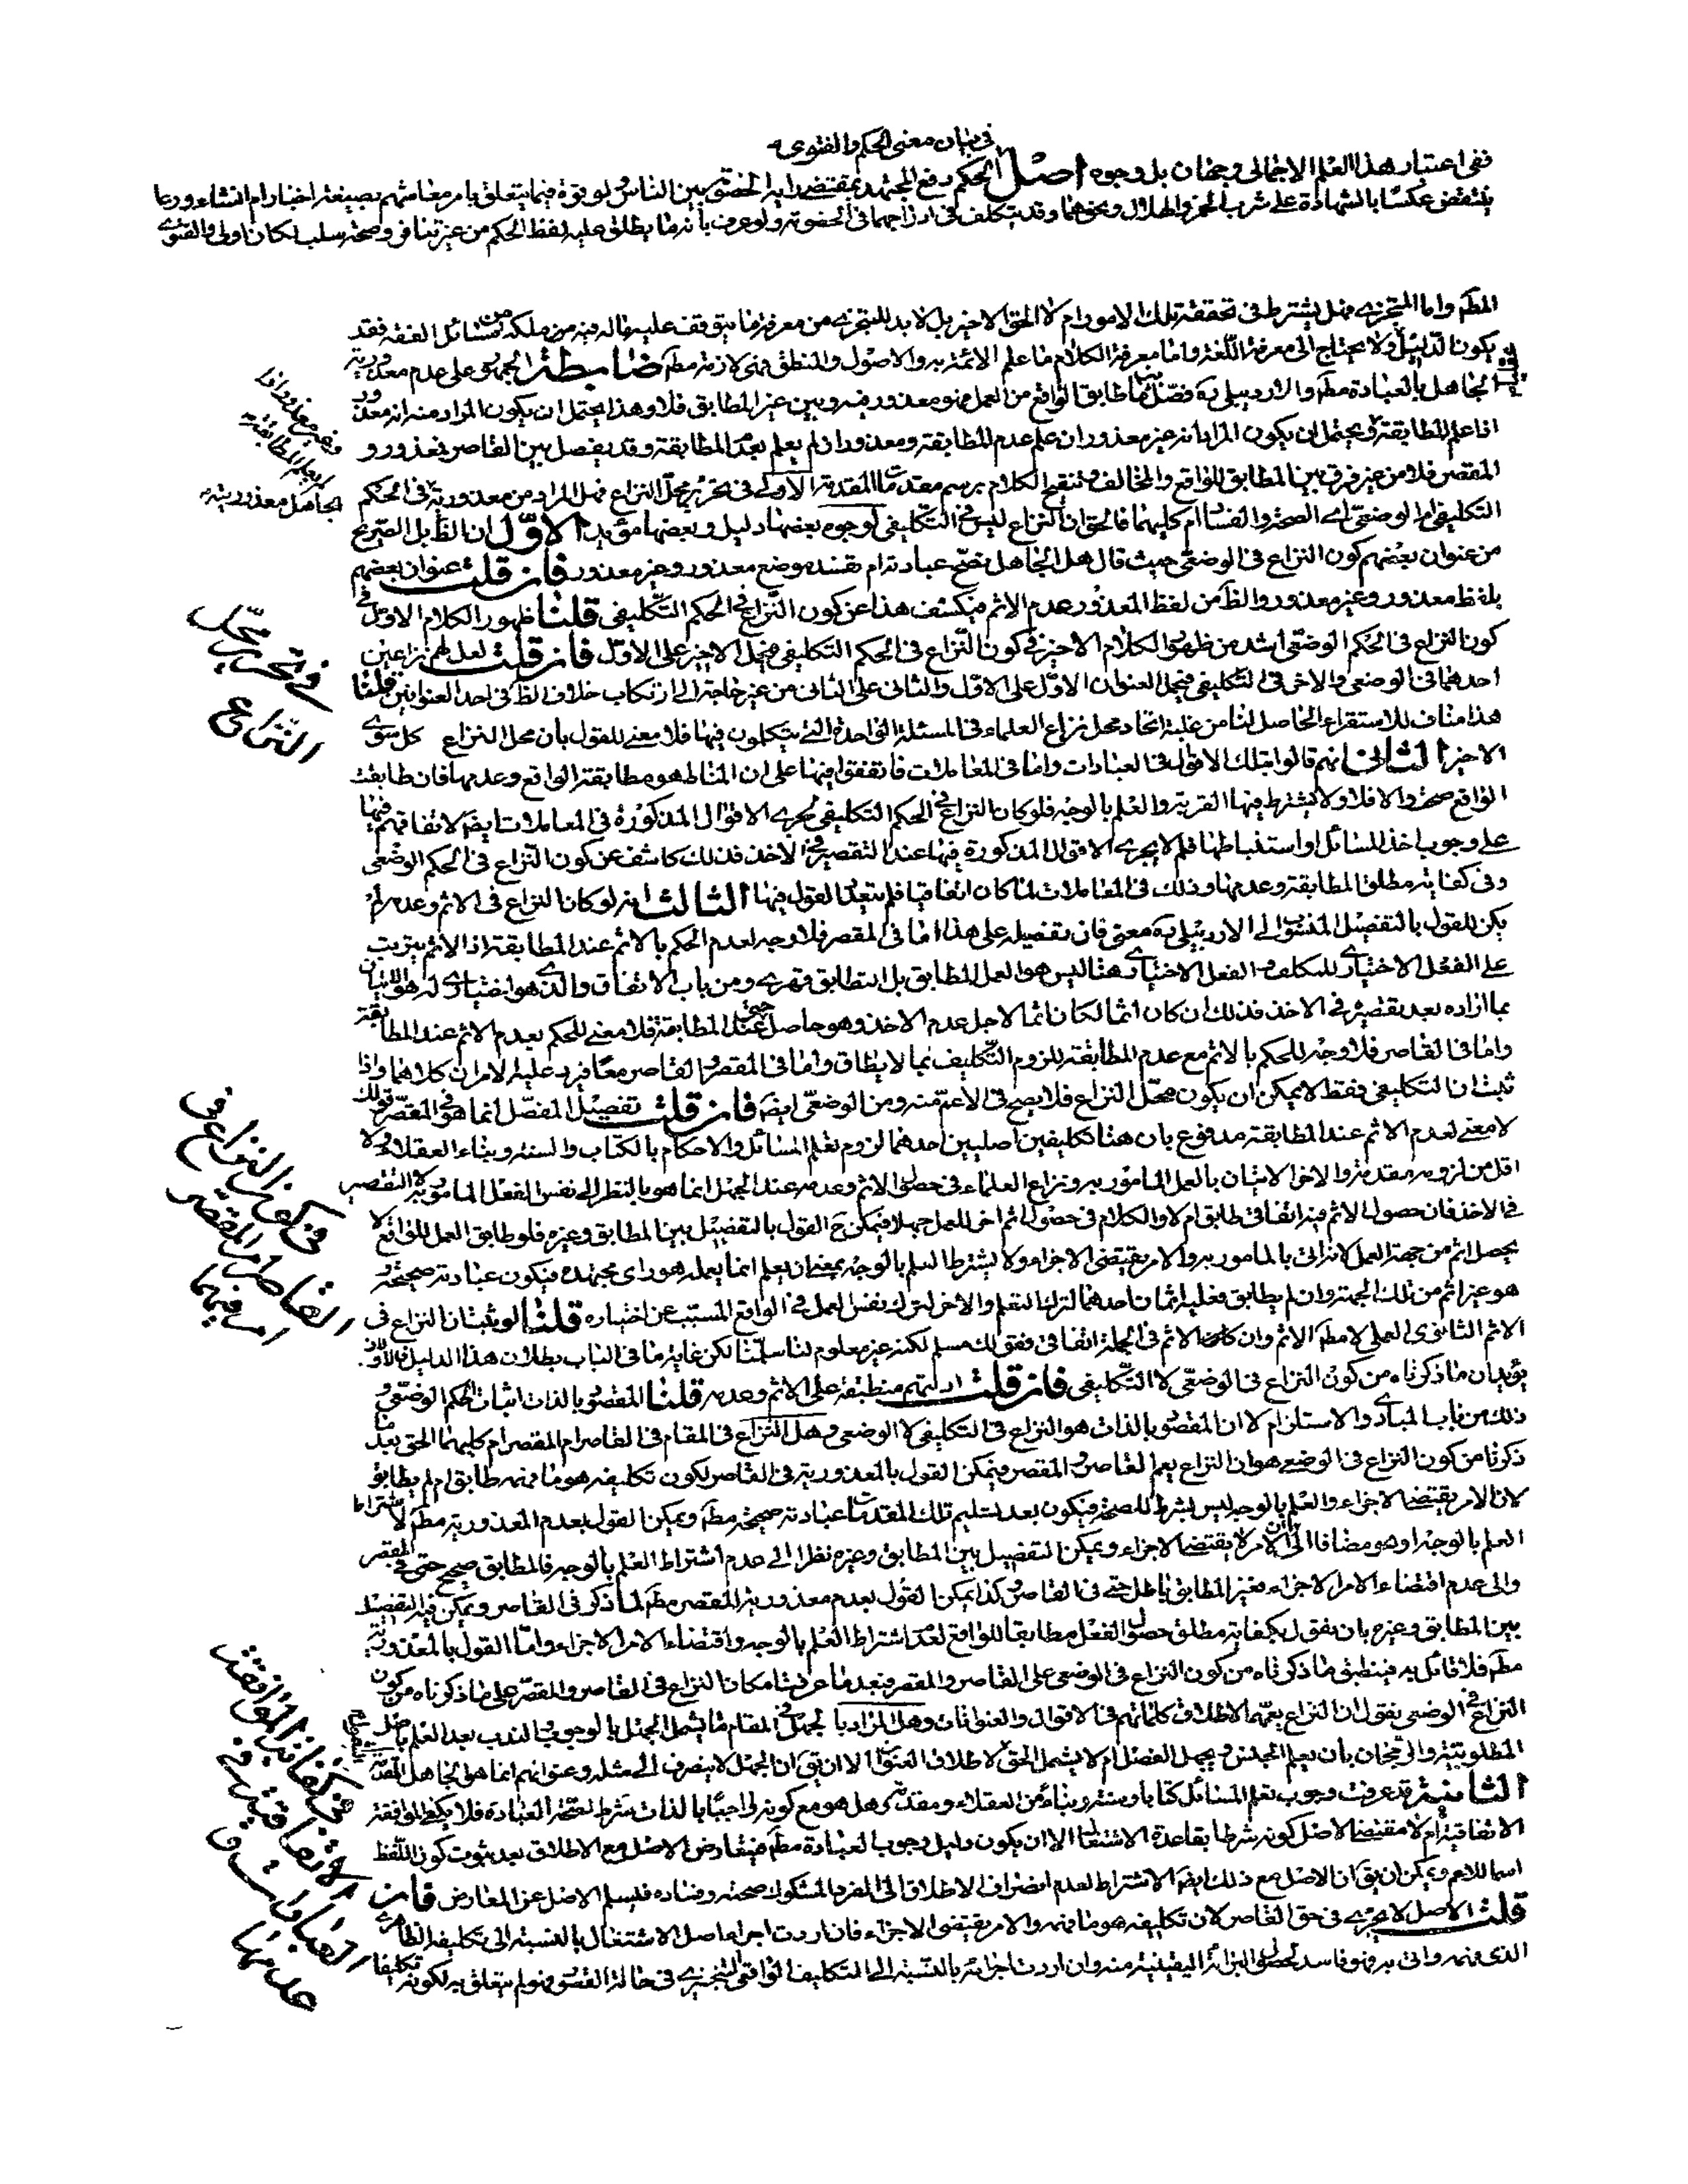 فی بیان معنی الحکم والفتوی
ففی اعتبار هذا العلم الاجمالی وجهان بل وجوه اصل الحکم دفع المجتهد بمقتضی رایه الخصومة بین الناس فیما یتعلق بامر معاشهم بصیغة اخبار ام انشاء وربما
ینتقض عکسا بالشهادة علی شرب الخمر والهلال ونحوهما وقد یتکلف فی ادراجهما فی الخصومة ولو عرف بانه ما یطلق علیه لفظ الحکم من غیر تنافر وصحة سلب لکان اولی والفتوی
المط واما المتجزی فهل یشترط فی تحققه تلک الامور ام لا الحق الاخیر بل لا بد للمتجزی من معرفة ما یتوقف علیه ماله فیه من ملکة من مسائل الفقه فقد
یکون الدلیل ولا یحتاج الی معرفة اللغة واما معرفة الکلام ما علم الائمة به والاصول والمنطق فهی لازمة مط ضابطة الجمهور علی عدم معذوریة
الجاهل بالعبادة مط والاردبیلی ره فصل بین ما طابق الواقع من العمل فهو معذور فیه وبین غیر المطابق فلا وهذا یحتمل ان یکون المراد منه انه معذور
اذا علم المطابقة ویحتمل ان یکون المراد انه غیر معذور ان علم عدم المطابقة ومعذور اذ لم یعلم بعد المطابقة وقد یفصل بین القاصر فمعذور و
المقصر فلا من غیر فرق بین المطابق للواقع والمخالف وتنقیح الکلام برسم مقدمات المقدمة الاولی فی تحریر محل النزاع فهل المراد من معذوریته فی الحکم
التکلیفی ام الوضعی ای الصحة والفساد ام کلیهما فالحق ان النزاع لیس فی التکلیفی لوجوه بعضها دلیل وبعضها مؤید الاول ان الظ بل الصریح
من عنوان بعضهم کون النزاع فی الوضعی حیث قال هل الجاهل تصح عبادته ام تفسد موضع معذور وغیر معذور فان قلت عنوان بعضهم
بلفظ معذور وغیر معذور والظ من لفظ المعذور عدم الاثم فیکشف هذا عن کون النزاع فی الحکم التکلیفی قلنا ظهور الکلام الاول فی
کون النزاع فی الحکم الوضعی اشد من ظهور الکلام الاخیر فی کون النزاع فی الحکم التکلیفی فیحمل الاخیر علی الاول فان قلت لعل لهم نزاعین
احدهما فی الوضعی والاخر فی التکلیفی فیحمل العنوان الاول علی الاول والثانی علی الثانی من غیر حاجة الی ارتکاب خلاف الظ فی احد العنوانین قلنا
هذا مناف للاستقراء الحاصل لنا من غلبة اتحاد محل نزاع العلماء فی المسئلة الواحدة التی یتکلمون فیها فلا معنی للقول بان محل النزاع کل سوی
الاخیر الثانی انهم قالوا بتلک الاقوال فی العبادات واما فی المعاملات فاتفقوا فیها علی ان المناط هو مطابقة الواقع وعدمها فان طابقت
الواقع صحت والا فلا ولا یشترط فیها القربة والعلم بالوجه فلو کان النزاع فی الحکم التکلیفی لجری الاقوال المذکورة فی المعاملات ایضا لاتفاقهم فیها
علی وجوب اخذ المسائل واستنباطها فلم لا یجری الاقوال المذکورة فیها عند التقصیر فی الاخذ فذلک کاشف عن کون النزاع فی الحکم الوضعی
وفی کفایة مطلق المطابقة وعدمها وذلک فی المعاملات لما کان اتفاقیا فلم یتعدد القول فیها الثالث انه لو کان النزاع فی الاثم وعدمه لم
یکن للقول بالتفصیل المنسوب الی الاردبیلی ره معنی فان تفصیله علی هذا اما فی المقصر فلا وجه لعدم الحکم بالاثم عند المطابقة اذ الاثم یترتب
علی الفعل الاختیاری للمکلف والفعل الاختیاری هنا لیس هو العمل المطابق بل التطابق قهری ومن باب الاتفاق والذی هو اختیاری له هو الاتیان
بما اراده بعد تقصیره فی الاخذ فذلک ان کان اثما لکان اثما لاجل عدم الاخذ وهو حاصل حتی عند المطابقة فلا معنی للحکم بعدم الاثم عند المطابقة
واما فی القاصر فلا وجه للحکم بالاثم مع عدم المطابقة للزوم التکلیف بما لا یطاق واما فی المقصر والقاصر معا فیرد علیه الامران کلاهما واذا
ثبت ان التکلیفی فقط لا یمکن ان یکون محل النزاع فلا یصح فی الاعم منه ومن الوضعی ایضا فان قلت تفصیل المفصل انما هو فی المقصر قولک
لا معنی لعدم الاثم عند المطابقة مدفوع بان هنا تکلیفین اصلیین احدهما لزوم تعلم المسائل والاحکام بالکتاب والسنة وبناء العقلاء ولا
اقل من لزومه مقدمة والاخر الاتیان بالعمل المامور به ونزاع العلماء فی حصول الاثم وعدمه عند الجهل انما هو بالنظر الی نفس الفعل المامور به لا التقصیر
فی الاخذ فان حصول الاثم فیه اتفاقی طابق ام لا والکلام فی حصول اثم اخر للعمل جهلا فیمکن ح القول بالتفصیل بین المطابق وغیره فلو طابق العمل للواقع لا
یحصل اثم من جهة العمل لانه اتی بالمامور به والامر یقتضی الاجزاء ولا یشترط العلم بالوجه بمعنی ان یعلم انما یعمله هو رای مجتهده فیکون عبادته صحیحة و
هو غیر اثم من تلک الجهة وان لم یطابق فعلیه اثمان احدهما لترک التعلم والاخر لترک نفس العمل فی الواقع المسبب عن اختیاره قلنا لو ثبت ان النزاع فی
الاثم الثانوی العملی لا مط الاثم وان کان الاثم فی الجملة اتفاقی فقولک مسلم لکنه غیر معلوم لنا سلمنا لکن غایة ما فی الباب بطلان هذا الدلیل فالاولان
یؤیدان ما ذکرناه من کون النزاع فی الوضعی لا التکلیفی فان قلت ادلتهم منطبقة علی الاثم وعدمه قلنا المقصود بالذات اثبات الحکم الوضعی و
ذلک من باب المبادی والاستلزام لا ان المقصود بالذات هو النزاع فی التکلیفی لا الوضعی وهل النزاع فی المقام فی القاصر ام المقصر ام کلیهما الحق بعد ما
ذکرنا من کون النزاع فی الوضعی هو ان النزاع یعم القاصر والمقصر فیمکن القول بالمعذوریة فی القاصر لکون تکلیفه هو ما فهمه طابق ام لم یطابق
لان الامر یقتضی الاجزاء والعلم بالوجه لیس بشرط للصحة فیکون بعد تسلیم تلک المقدمات عبادته صحیحة مط ویمکن القول بعدم المعذوریة مط لاشتراط
العلم بالوجه او هو مضافا الی ان الامر لا یقتضی الاجزاء ویمکن التفصیل بین المطابق وغیره نظرا الی عدم اشتراط العلم بالوجه فالمطابق صحیح حتی فی المقصر
والی عدم اقتضاء الامر الاجزاء فغیر المطابق باطل حتی فی القاصر وکذا یمکن القول بعدم معذوریة المقصر مط لما ذکر فی القاصر ویمکن فیه التفصیل
بین المطابق وغیره بان یقول بکفایة مطلق حصول الفعل مطابقا للواقع لعدم اشتراط العلم بالوجه واقتضاء الامر الاجزاء واما القول بالمعذوریة
مط فلا قائل به فینطبق ما ذکرناه من کون النزاع فی الوضعی علی القاصر والمقصر فبعد ما عرفت امکان النزاع فی القاصر والمقصر علی ما ذکرناه من کون
النزاع فی الوضعی نقول ان النزاع یعمهما لاطلاق کلماتهم فی الاقوال والعنوانات وهل المراد بالجهل فی المقام ما یشمل الجهل بالوجوب والندب بعد العلم باصل
المطلوبیة والرجحان بان یعلم الجنس ویجهل الفصل ام لا یشمل الحق لا لاطلاق العنوان الا ان یق ان الجهل لا ینصرف الی مثله وعنوانهم انما هو الجاهل
الثانیة قد عرفت وجوب تعلم المسائل کتابا وسنة وبناء من العقلاء ومقدمة هل هو مع کونه واجبا بالذات شرط لصحة العبادة فلا یکفی الموافقة
الاتفاقیة ام لا مقتضی الاصل کونه شرطا بقاعدة الاشتغال الا ان یکون دلیل وجوب العبادة مط فیتعارض الاصل مع الاطلاق بعد ثبوت کون اللفظ
اسما للاعم ویمکن ان یق ان الاصل مع ذلک ایضا الاشتراط لعدم انصراف الاطلاق الی الفرد المشکوک صحته وفساده فیسلم الاصل عن المعارض فان
قلت الاصل لا یجری فی حق القاصر لان تکلیفه هو ما فهمه والامر یقتضی الاجزاء فان اردت اجراء اصل الاشتغال بالنسبة الی تکلیفه الظاهری
الذی فهمه واتی به فهو فاسد لحصول البرائة الیقینیة منه وان اردت اجرائه بالنسبة الی التکلیف الواقعی التنجیزی فی حالة القصور فهو لم یتعلق به لکونه تکلیفا
الجاهل معذوریته
فی تحریر محل
النزاع
فی کون النزاع فی
القاصر او المقصر
ام فیهما
فی کفایة الموافقة
الاتفاقیة فی
العبادات و
عدمها